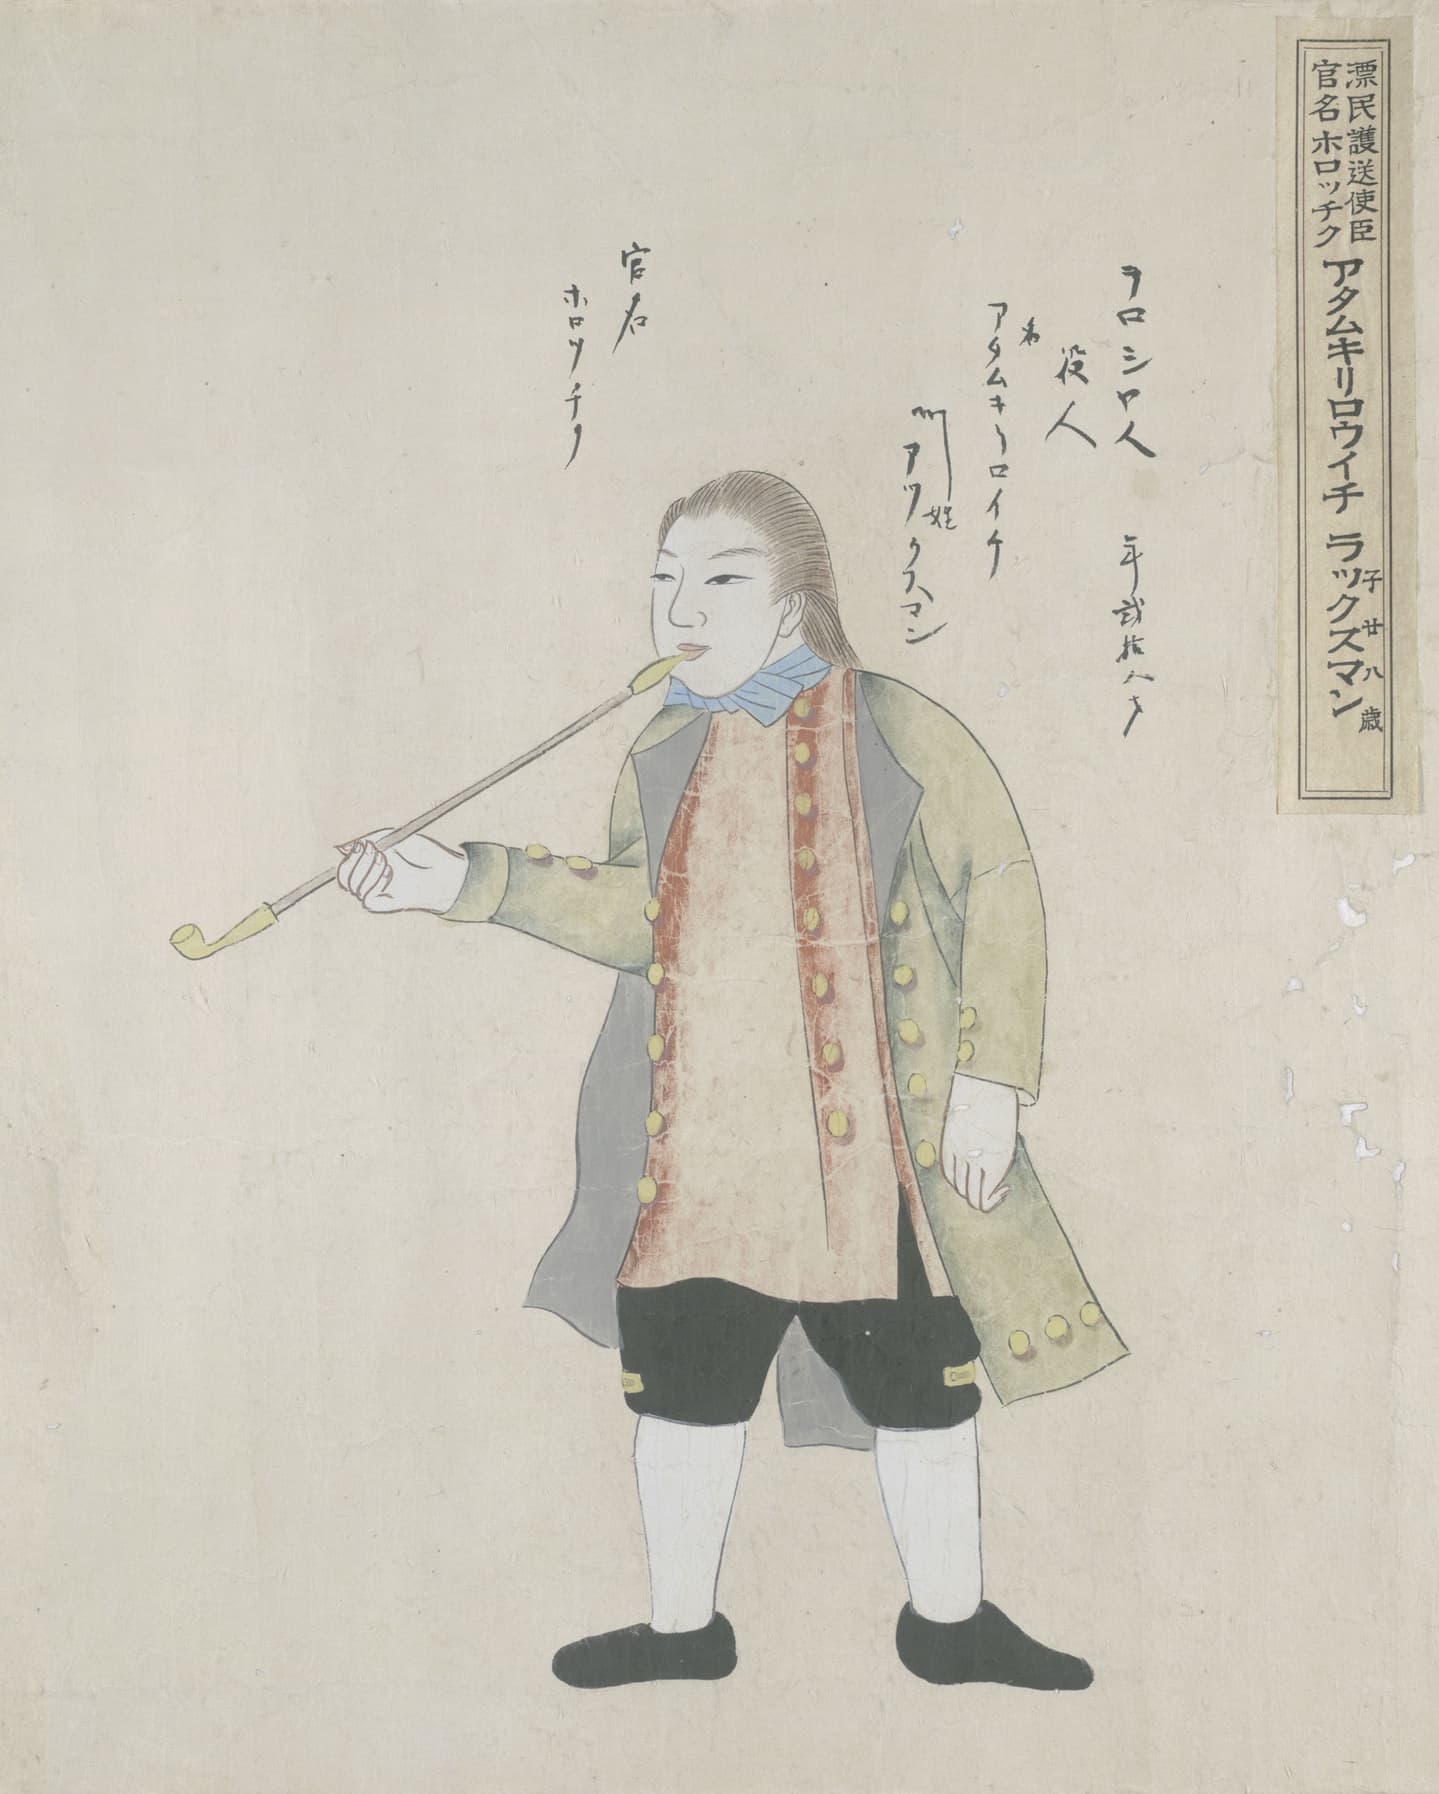 漂民護送使臣
官名ホロッチク
アタムキリロウイチ ラックスマン
子廿八歳
ヲロシヤ人 年貳拾八才
役人
名
アタムキリロイケ
姓
アツクスマン
官名
ホロツチク